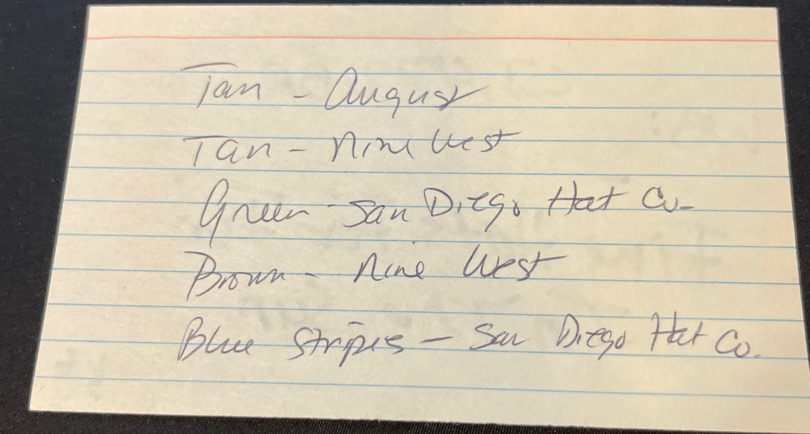 Tan - August
Tan - Nine West
Green - San Diego Hat Co.
Brown - Nine West
Blue Stripes - San Diego Hat Co.